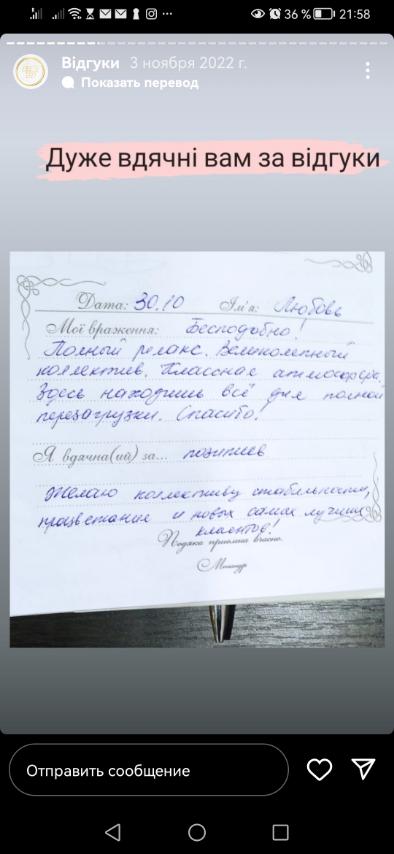 36 % 21:58
Відгуки 3 ноября 2022 г.
Показать перевод
Дуже вдячні вам за відгуки
Дата: 30.10 Ім'я: Любовь
Мої враження: Бесподобно!
Полный релакс. Великолепный
коллектив. Классная атмосфера.
Здесь находишь всё для полной
перезагрузки. Спасибо!
Я вдячна(ий) за... позитив
Желаю коллективу стабильности,
процветание и новых самых лучших
клиентов!
Подяка приємна вчасно.
Менандр
Отправить сообщение